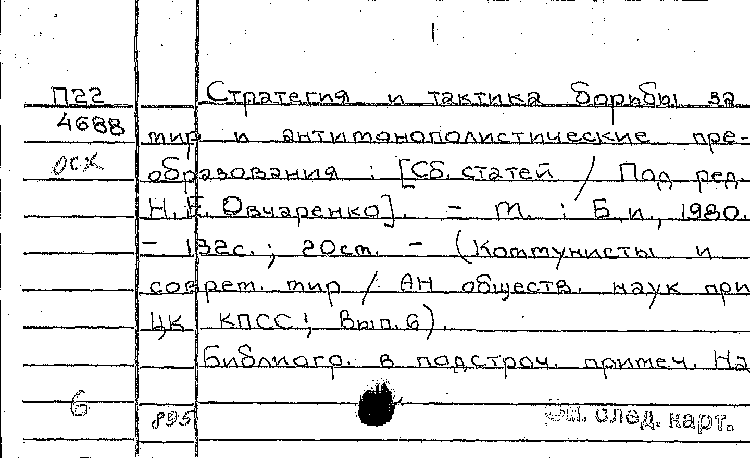 П22
4688
осх
Стратегия и тактика борьбы за
мир и антимонополистические пре-
образования : [Сб. статей / Под ред.
Н.Е. Овчаренко]. - М. : Б.и., 1980.
- 132с. ; 20см. - (Коммунисты и
соврем. мир / АН обществ. наук при
ЦК КПСС ; Вып. 6).
Библиогр. в подстроч. примеч. На
6
895
См. след. карт.